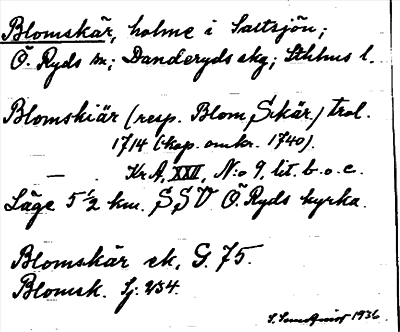 Blomskär, holme i Saltsjön;
Ö. Ryds sn; Danderyds skg; Sthlms l.
Blomskiär (resp. Blom Skär) trol.
1714 (kop. omkr. 1740).
Kr A, XXII, N:o 9, lit. b. o. c.
Läge 5 ½ km. SSV Ö Ryds kyrka.
Blomskär ek, G. 75.
Blomsk. Sj. 234.
1936